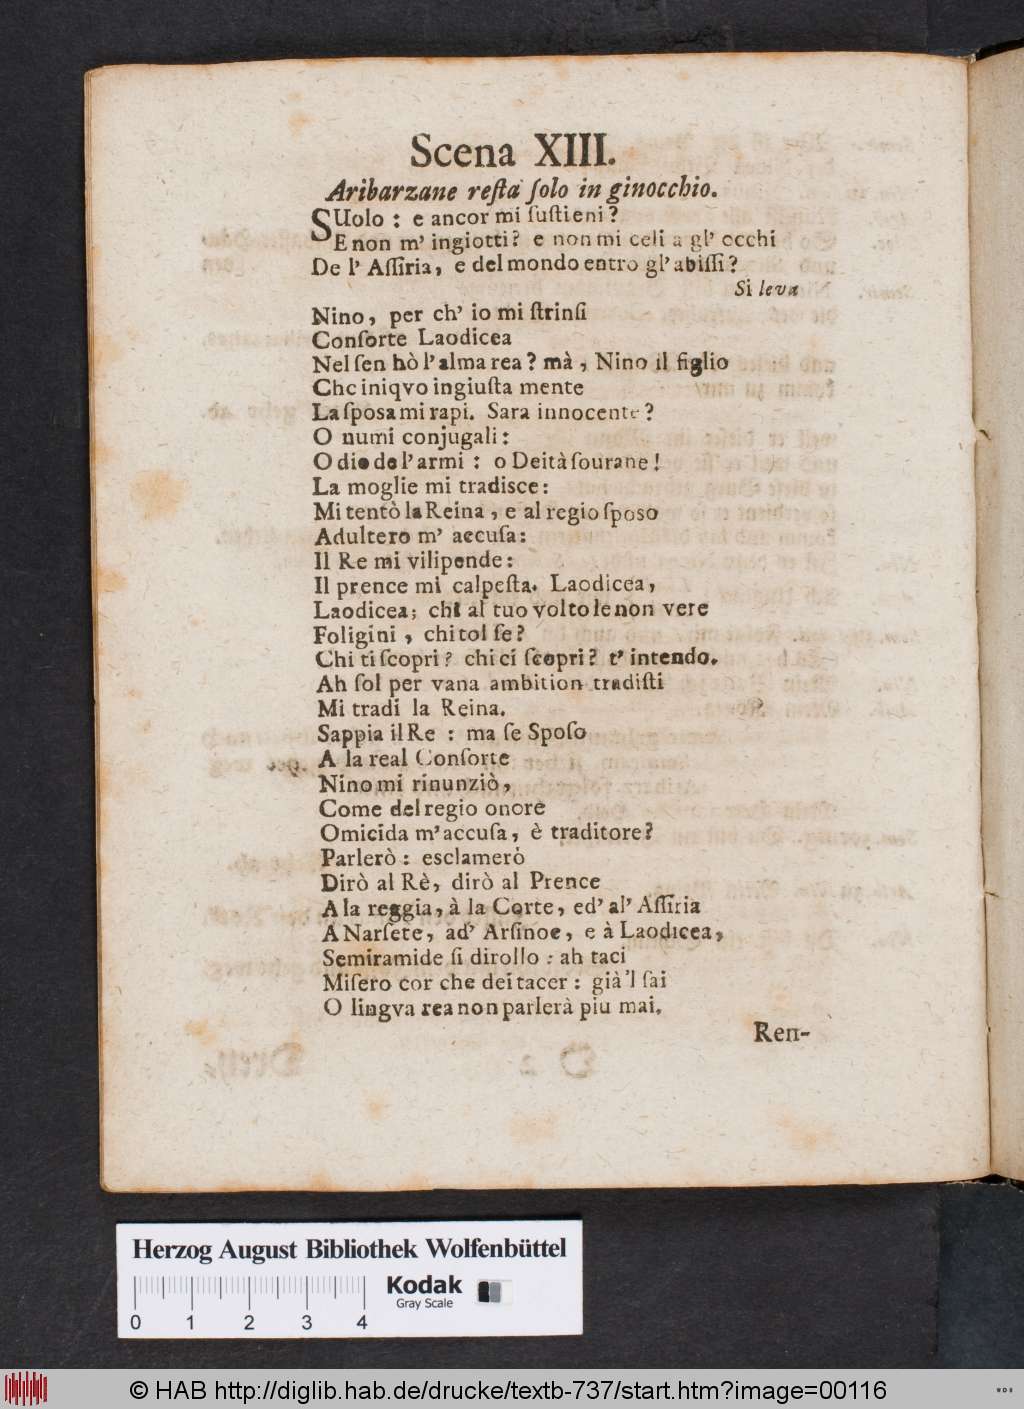 Scena XIII.
Aribarzane reſta ſolo in ginocchio.
SUolo : e ancor mi ſuſtieni ?
E non m' ingiotti? e non mi celi a gl' occhi
De l' Aſſiria, e del mondo entro gl' abiſſi ?
Si leva
Nino, per ch' io mi ſtrinſi
Conſorte Laodicea
Nel ſen hò l' alma rea ? mà, Nino il figlio
Che iniqvo ingiuſta mente
La ſpoſa mi rapi. Sara innocente ?
O numi conjugali :
O dio de l' armi : o Deità ſourane !
La moglie mi tradisce :
Mi tentò la Reina, e al regio ſposo
Adultero m' accuſa :
Il Re mi vilipende :
Il prence mi calpeſta. Laodicea,
Laodicea; chi al tuo volto le non vere
Foligini, chi tol ſe?
Chi ti ſcopri ? chi ci ſcopri ? t' intendo.
Ah ſol per vana ambition tradiſti
Mi tradi la Reina.
Sappia il Re : ma ſe Spoſo
A la real Conſorte
Nino mi rinunziò,
Come del regio onore
Omicida m' accuſa, è traditore ?
Parlerò : esclamerò
Dirò al Rè, dirò al Prence
A la reggia, à la Corte, ed' al' Aſſiria
A Narſete, ad' Arſinoe, e à Laodicea,
Semiramide ſi dirollo : ah taci
Miſero cor che dei tacer : già 'l ſai
O lingva rea non parlerà piu mai.
Ren-
Herzog August Bibliothek Wolfenbüttel
Kodak
Gray Scale
0 1 2 3 4
© HAB http://diglib.hab.de/drucke/textb-737/start.htm?image=00116